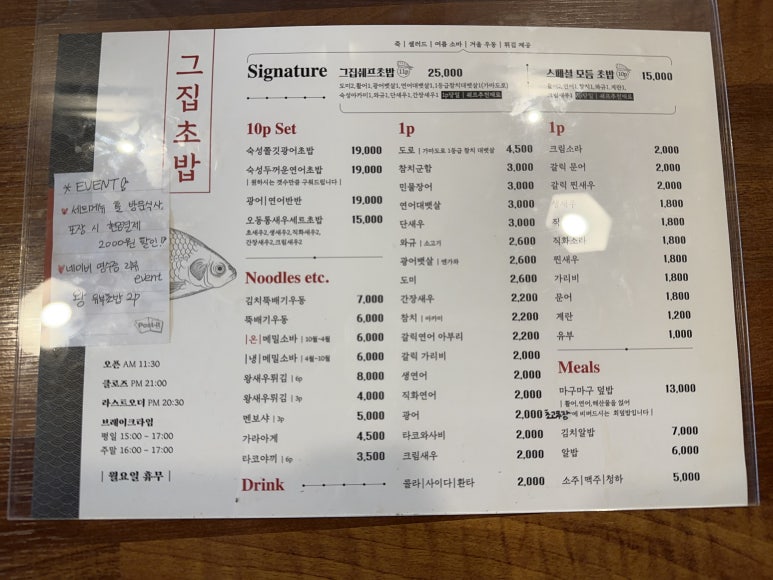 죽 | 샐러드 | 여름 소바 | 겨울 우동 | 튀김 제공
그집초밥
Signature
그집쉐프초밥 11p 25,000
도미2,활어1,광어뱃살1,연어대뱃살1,1등급참치대뱃살1(가마도로)
숙성아카미1,와규1,단새우1,간장새우1
스페셜 모듬 초밥 10p 15,000
10p Set
숙성쫄깃광어초밥 19,000
숙성두꺼운연어초밥 19,000
| 원하시는 갯수만큼 구워드립니다 |
광어|연어반반 19,000
오동통새우세트초밥 15,000
초새우2,생새우2,직화새우2,
간장새우2,크림새우2
Noodles etc.
김치뚝배기우동 7,000
뚝배기우동 6,000
|온|메밀소바 | 10월~4월 6,000
|냉|메밀소바 | 4월~10월 6,000
왕새우튀김 | 6p 8,000
왕새우튀김 | 3p 4,000
멘보샤 | 3p 5,000
가라아게 4,500
타코야끼 | 6p 3,500
Drink
콜라|사이다|환타 2,000
소주|맥주|청하 5,000
1p
도로 | 가마도로 1등급 참치 대뱃살 4,500
참치군함 3,000
민물장어 3,000
연어대뱃살 3,000
단새우 3,000
와규 | 소고기 2,600
광어뱃살 | 엔가와 2,600
도미 2,600
간장새우 2,200
참치 | 아카미 2,200
갈릭연어 아부리 2,200
갈릭 가리비 2,000
생연어 2,000
직화연어 2,000
광어 2,000
타코와사비 2,000
크림새우 2,000
1p
크림소라 2,000
갈릭 문어 2,000
갈릭 찐새우 2,000
1,800
1,800
직화소라 1,800
찐새우 1,800
가리비 1,800
문어 1,800
계란 1,200
유부 1,000
Meals
마구마구 덮밥 13,000
| 활어,연어,해산물을 얹어
초고추장에 비벼드시는 회덮밥입니다 |
김치알밥 7,000
알밥 6,000
* EVENT
세트메뉴 홀 방문식사,
포장 시 현금결제
2000원 할인!
네이버 영수증 리뷰
event
왕 유부초밥 2p
Post-it
오픈 AM 11:30
클로즈 PM 21:00
라스트오더 PM 20:30
브레이크타임
평일 15:00 ~ 17:00
주말 16:00 ~ 17:00
| 월요일 휴무 |